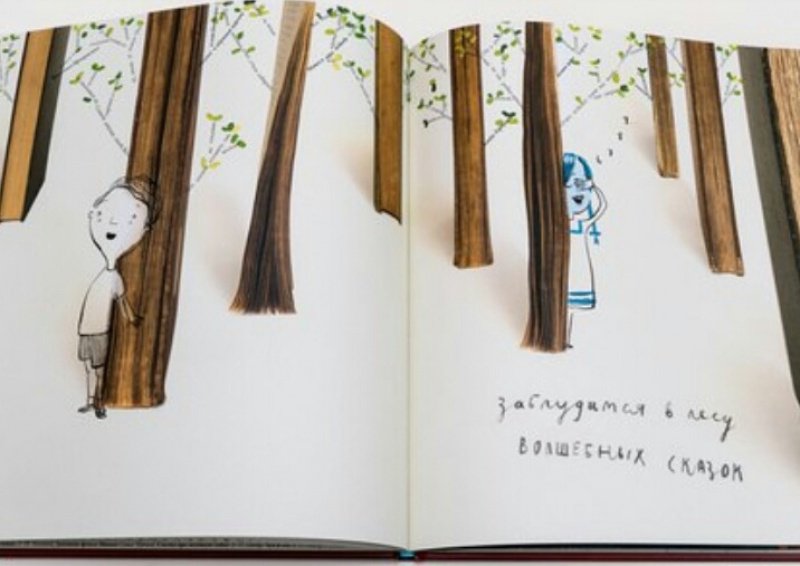 заблудимся в лесу
ВОЛШЕБНЫХ СКАЗОК